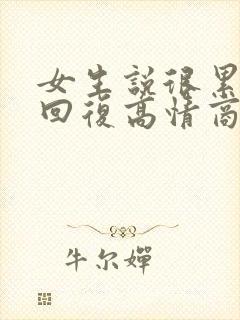 女生說很累
回復高情商
牛尔嬋